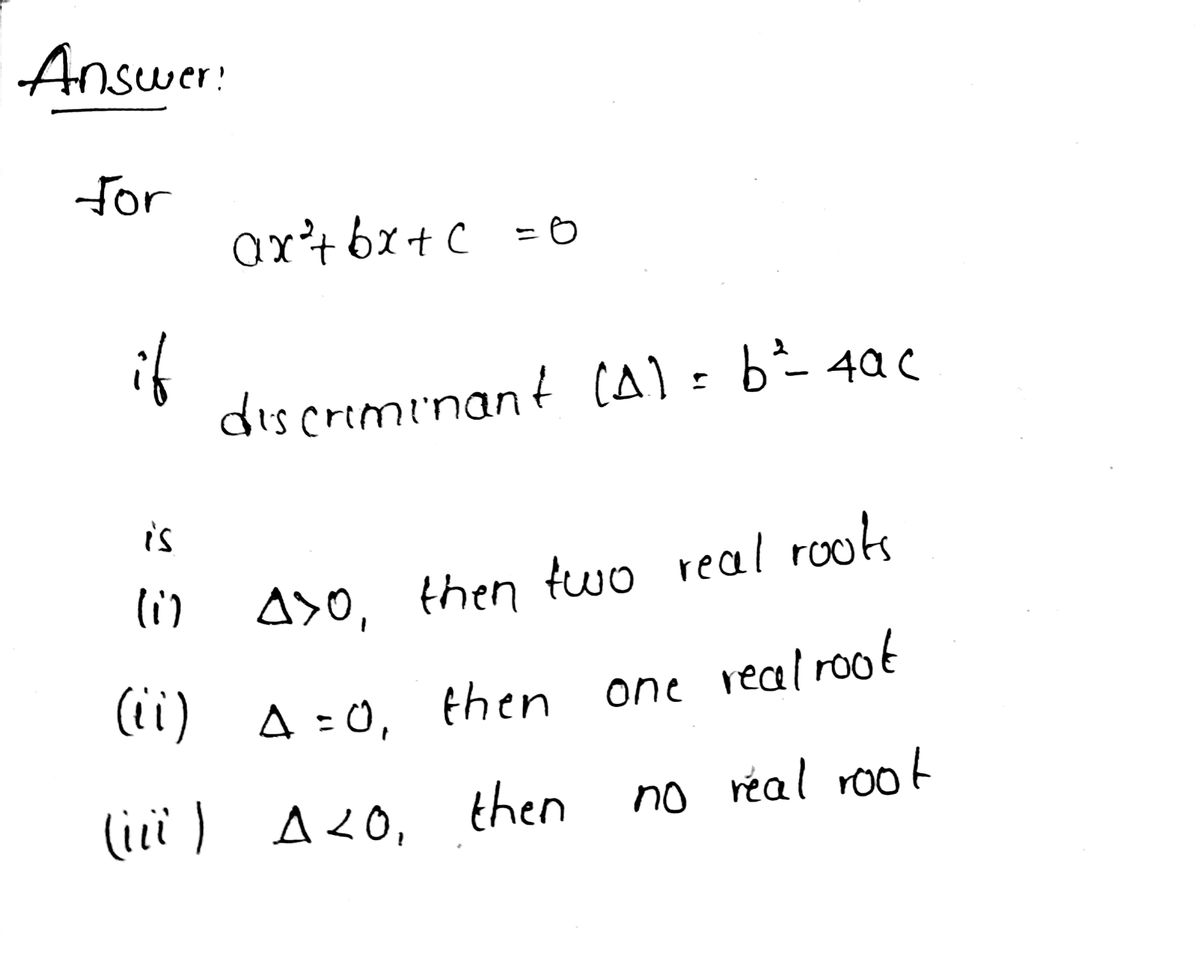 Answer:
For
ax²+bx+c =0
if discriminant (Δ) = b²-4ac
is
(i) Δ>0, then two real roots
(ii) Δ=0, then one real root
(iii) Δ<0, then no real root